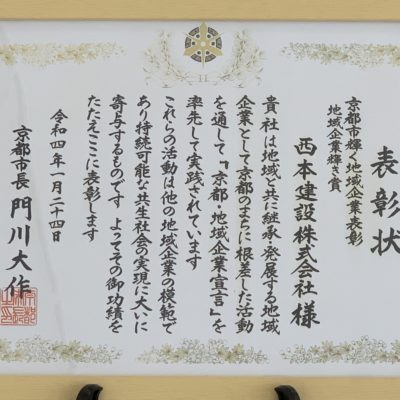 表彰状
京都市輝く地域企業表彰
地域企業輝き賞
西本建設株式会社 様
貴社は地域と共に継承・発展する地域
企業として京都のまちに根差した活動
を通して「京都・地域企業宣言」を
率先して実践されています
これらの活動は他の地域企業の模範で
あり持続可能な共生社会の実現に大いに
寄与するものです よってその御功績を
たたえここに表彰します
令和四年一月二十四日
京都市長 門川大作